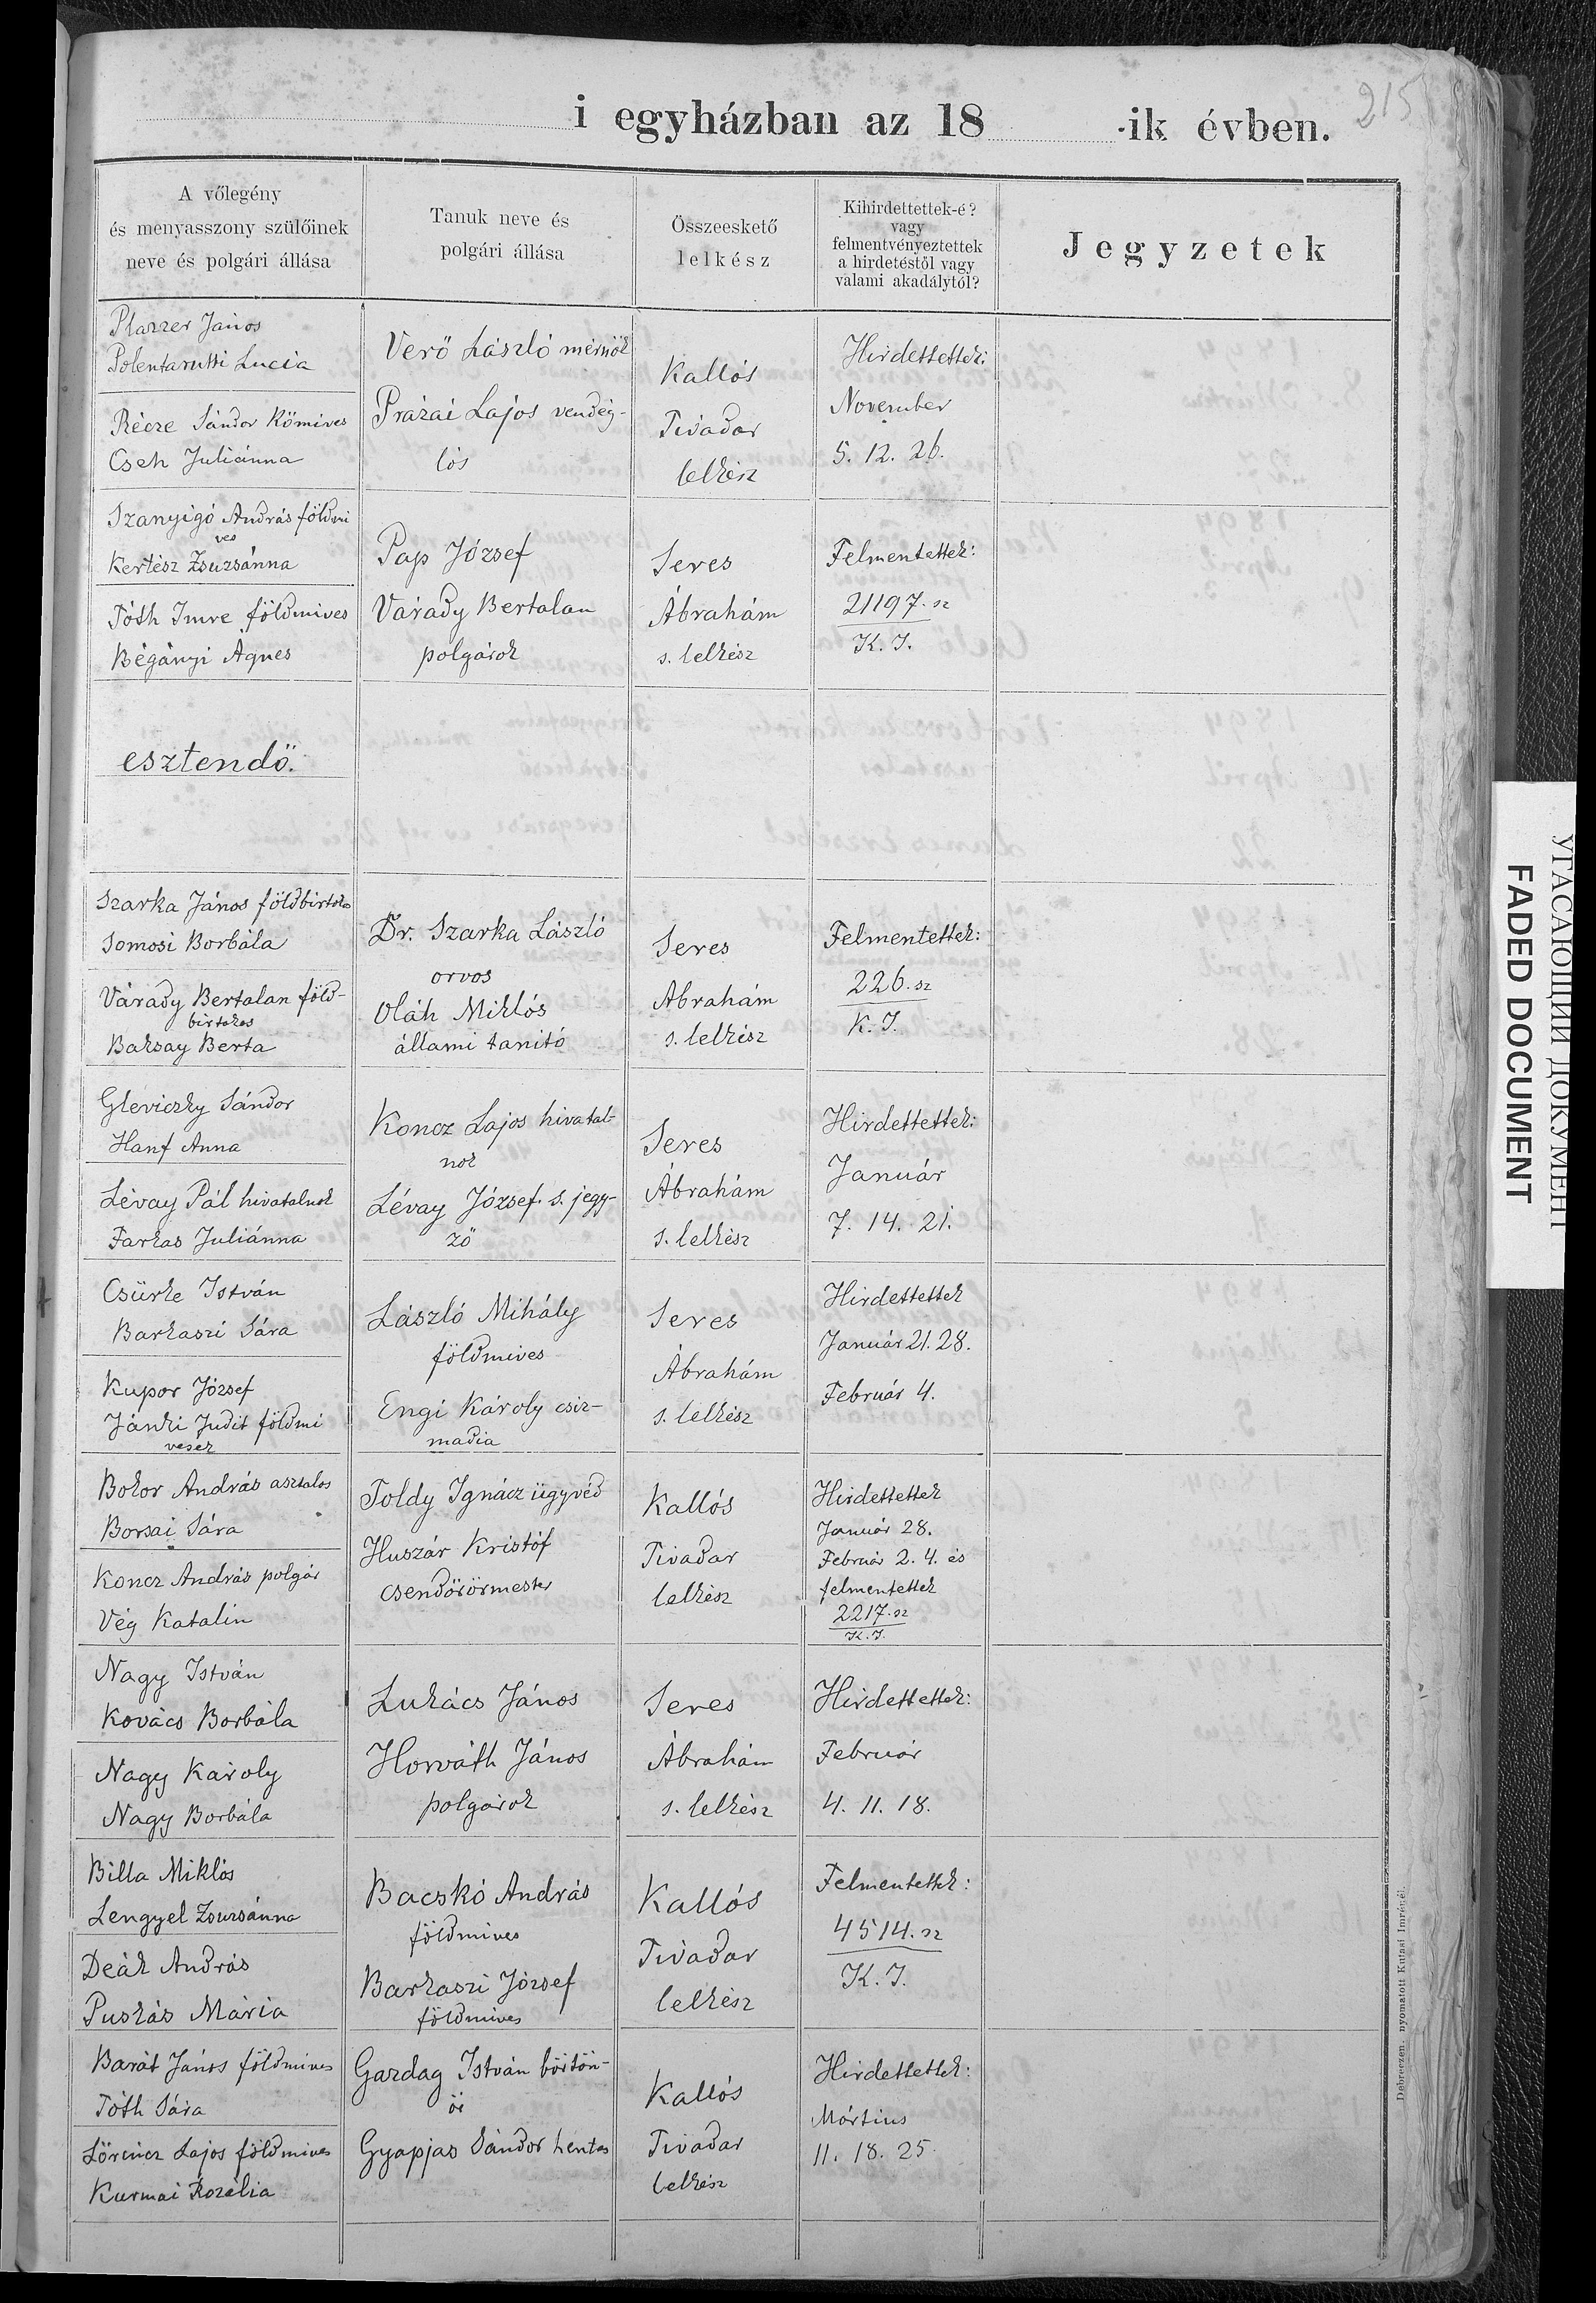 215
i egyházban az 18 -ik évben.
A vőlegény
és menyasszony szülőinek
neve és polgári állása
Tanuk neve és
polgári állása
Összeeskető
lelkész
Kihirdettettek-é?
vagy
felmentvényeztettek
a hirdetéstől vagy
valami akadálytól?
Jegyzetek
Plazzer János
Polentarutti Lucia
Récze Sándor Kömives
Cseh Juliánna
Verő László mérnök
Prázai Lajos vendég-
lős
Kallós
Tivadar
lelkész
Hirdettettek:
November
5. 12. 26.
Szanyigó András földmi
ves
Kertész Zsuzsánna
Tóth Imre földmives
Bégányi Ágnes
Pap József
Várady Bertalan
polgárok
Seres
Ábrahám
s. lelkész
Felmentettek:
21197. sz
K. I.
esztendő.
Szarka János földbirtokos
Somosi Borbála
Várady Bertalan föld-
birtokos
Baksay Berta
Dr. Szarka László
orvos
Oláh Miklós
állami tanitó
Seres
Ábrahám
s. lelkész
Felmentettek:
226. sz
K. I.
Gleviczky Sándor
Hanf Anna
Lévay Pál hivatalnok
Farkas Juliánna
Koncz Lajos hivatal-
nok
Lévay József s. jegy-
ző
Seres
Ábrahám
s. lelkész
Hirdettettek:
Január
7. 14. 21.
Csürke István
Barkaszi Sára
Kupor József
Jánki Judit földmi
vesek
László Mihály
földmives
Engi Károly csiz-
madia
Seres
Ábrahám
s. lelkész
Hirdettettek
Január 21. 28.
Február 4.
Bokor András asztalos
Borsai Sára
Koncz András polgár
Vég Katalin
Toldy Ignácz ügyvéd
Huszár Kristóf
csendőrörmester
Kallós
Tivadar
lelkész
Hirdettettek
Január 28.
Február 2. 4. és
felmentettek
2217. sz
K. I.
Nagy István
Kovács Borbála
Nagy Károly
Nagy Borbála
Lukács János
Horváth János
polgárok
Seres
Ábrahám
s. lelkész
Hirdettettek:
Február
4. 11. 18.
Billa Miklós
Lengyel Zsuzsánna
Deák András
Puskás Mária
Bacskó András
földmives
Barkaszi József
földmives
Kallós
Tivadar
lelkész
Felmentettek:
4514. sz
K. I.
Barát János földmives
Tóth Sára
Lőrincz Lajos földmives
Kurmai Rozália
Gazdag István börtön-
őr
Gyapjas Sándor hentes
Kallós
Tivadar
lelkész
Hirdettettek:
Mártius
11. 18. 25.
Debreczen, nyomatott Kutasi Imrénél.
УГАСАЮЩИЙ ДОКУМЕНТ
FADED DOCUMENT